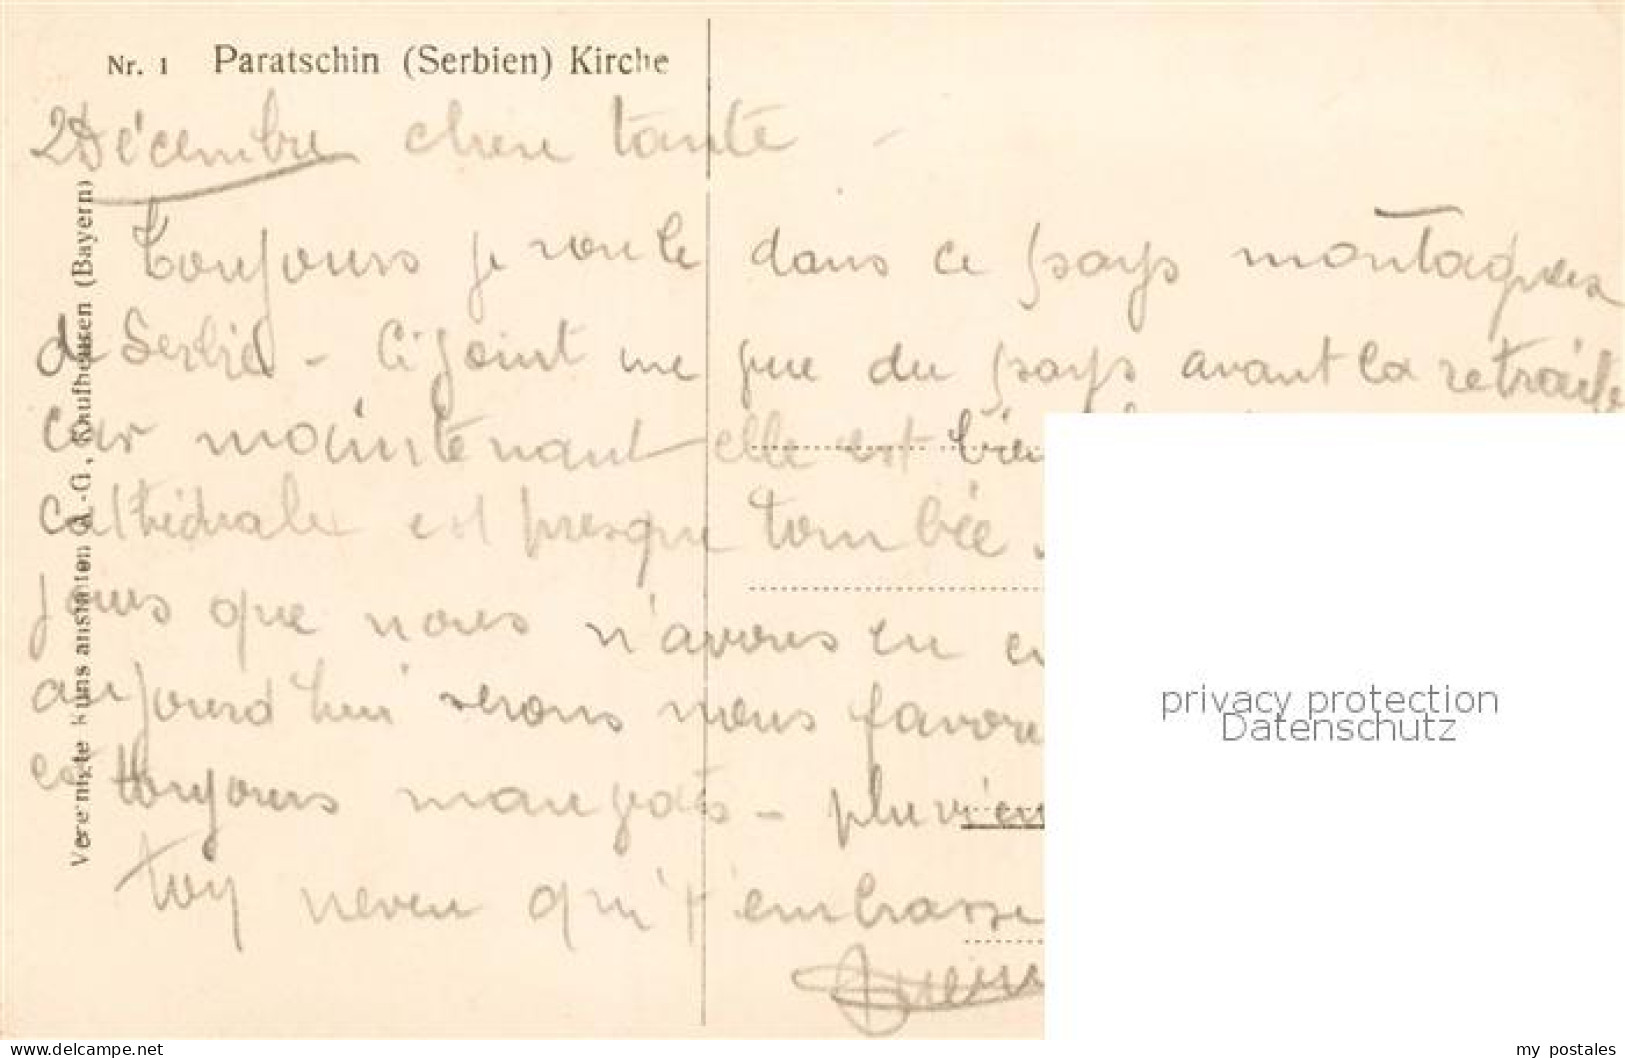 Nr. 1 Paratschin (Serbien) Kirche
2 Décembre chere tante -
Toujours je roule dans ce pays montagneux
de Serbie - Ci joint une vue du pays avant la retraite
car maintenant elle est bien
cathédrale est presque tombée.
jours que nous n'avons eu
aujourd'hui serons nous favori
est toujours mauvais -
Ton neveu qui t'embrasse
Vereinigte Kunstanstalten A.-G., Kaufbeuren (Bayern)
privacy protection
Datenschutz
www.delcampe.net
my_postales